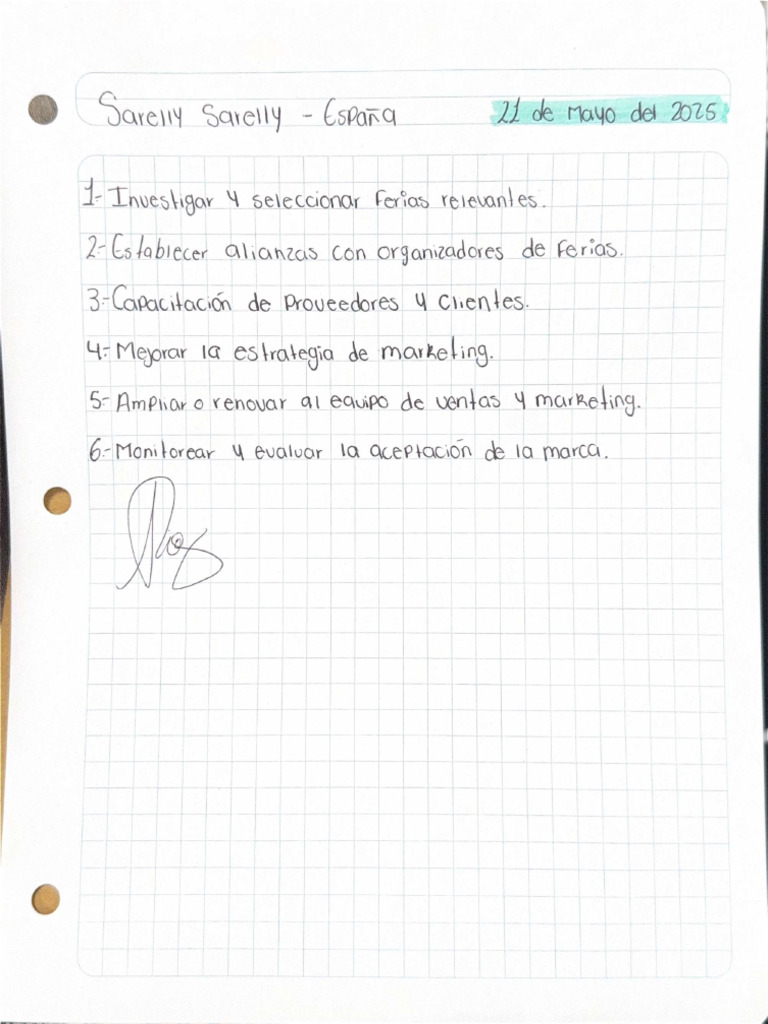 Sarelly Sarelly - España
21 de Mayo del 2025
1- Investigar y seleccionar Ferias relevantes.
2- Establecer alianzas con organizadores de Ferias.
3- Capacitación de Proveedores y Clientes.
4- Mejorar la estrategia de marketing.
5- Ampliar o renovar al equipo de ventas y marketing.
6- Monitorear y evaluar la aceptación de la marca.